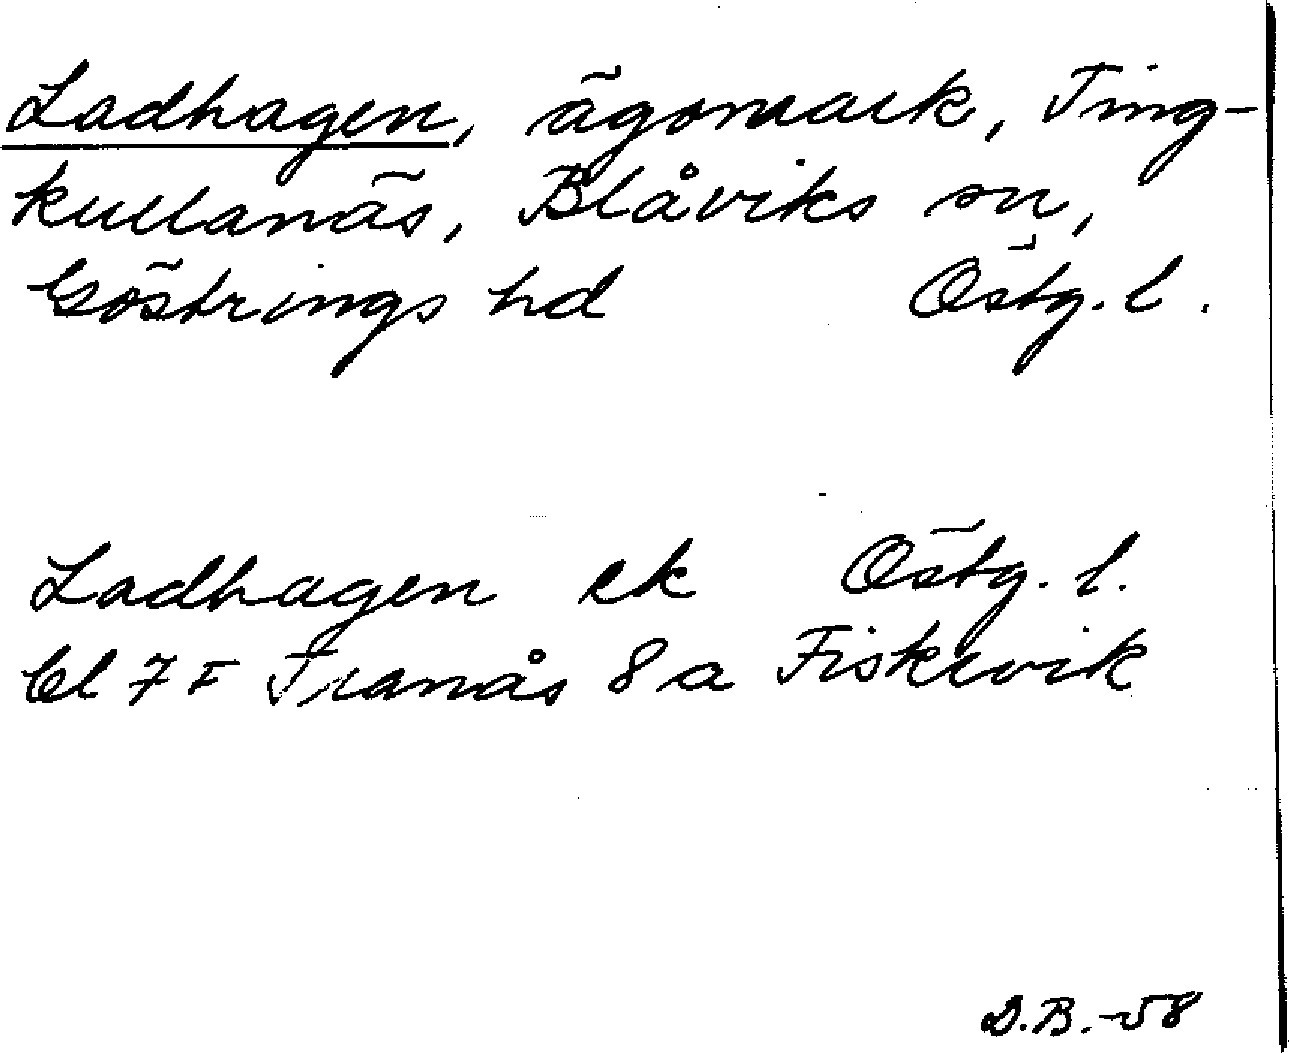 Ladhagen, ägomark, Ting-
kullanäs, Blåviks sn,
Göstrings hd Östg. l.
Ladhagen ek Östg. l.
bl 7F Tranås 8a Fiskevik
D.B.-58